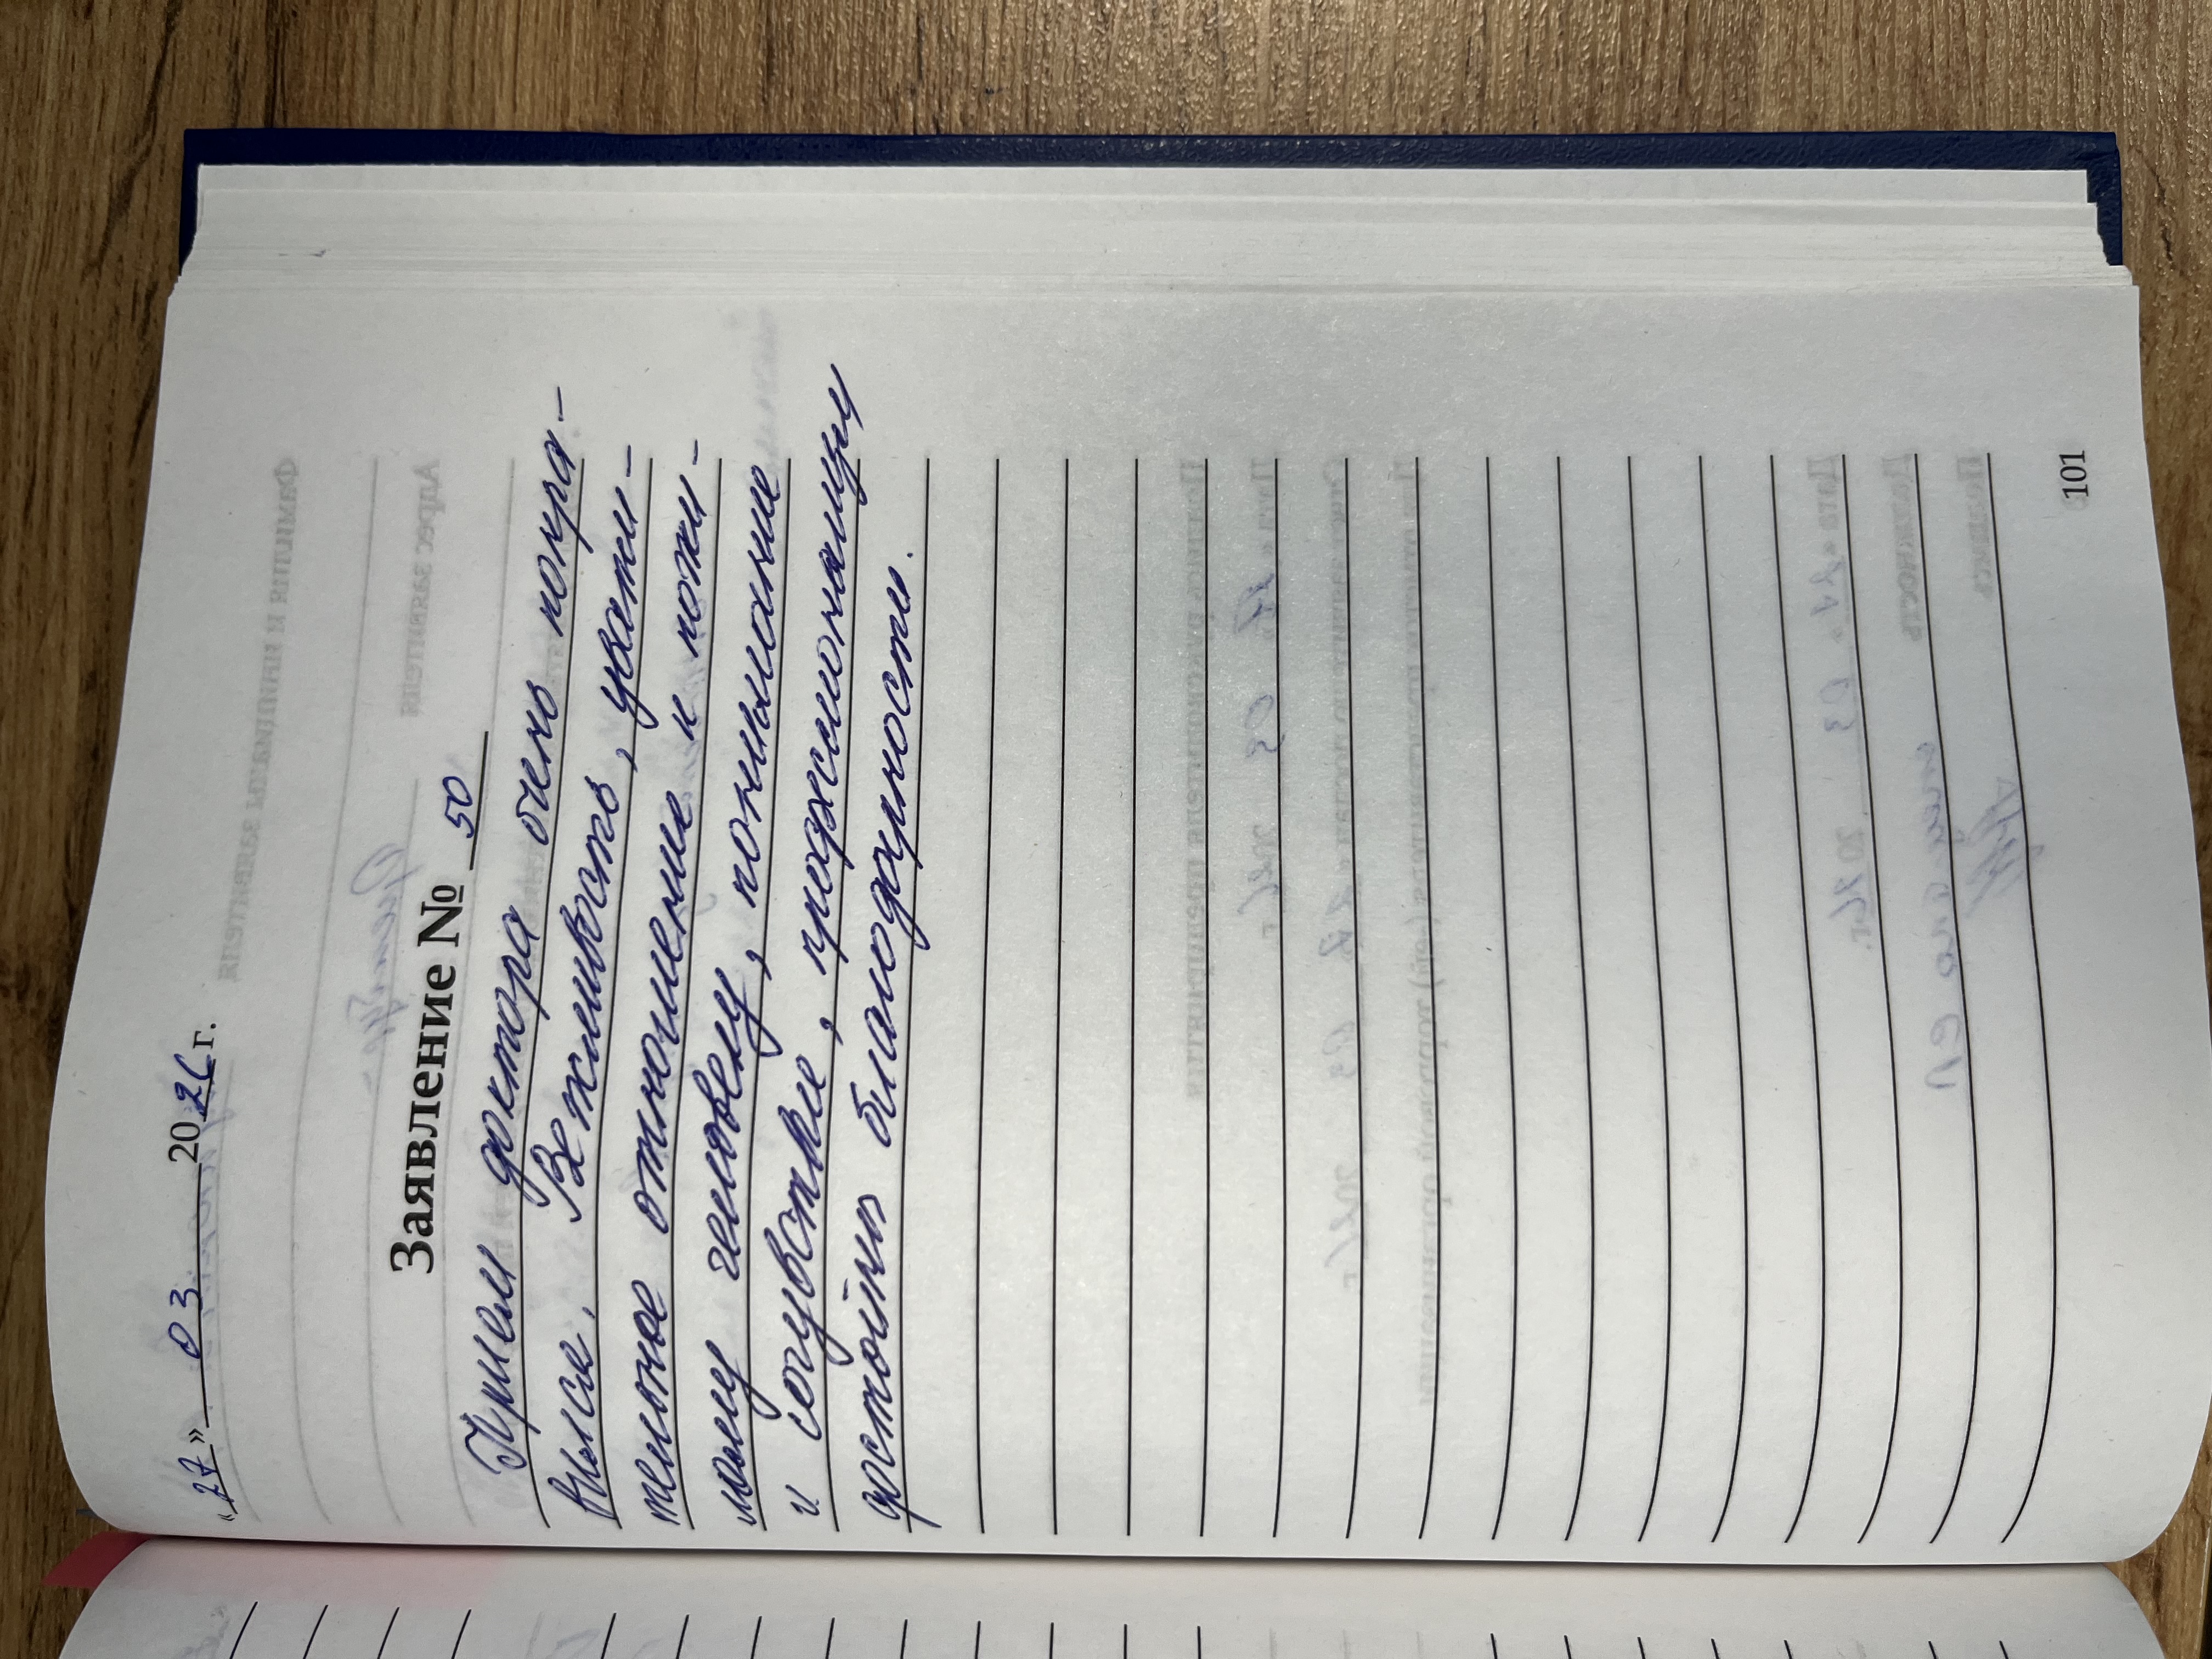 «27» 03 2026 г.
Заявление № 50
Прием доктора очень понра-
вился. Вежливость, уважи-
тельное отношение к пожи-
лому человеку, понимание
и сочувствие, профессионализм
достойно благодарности.
101